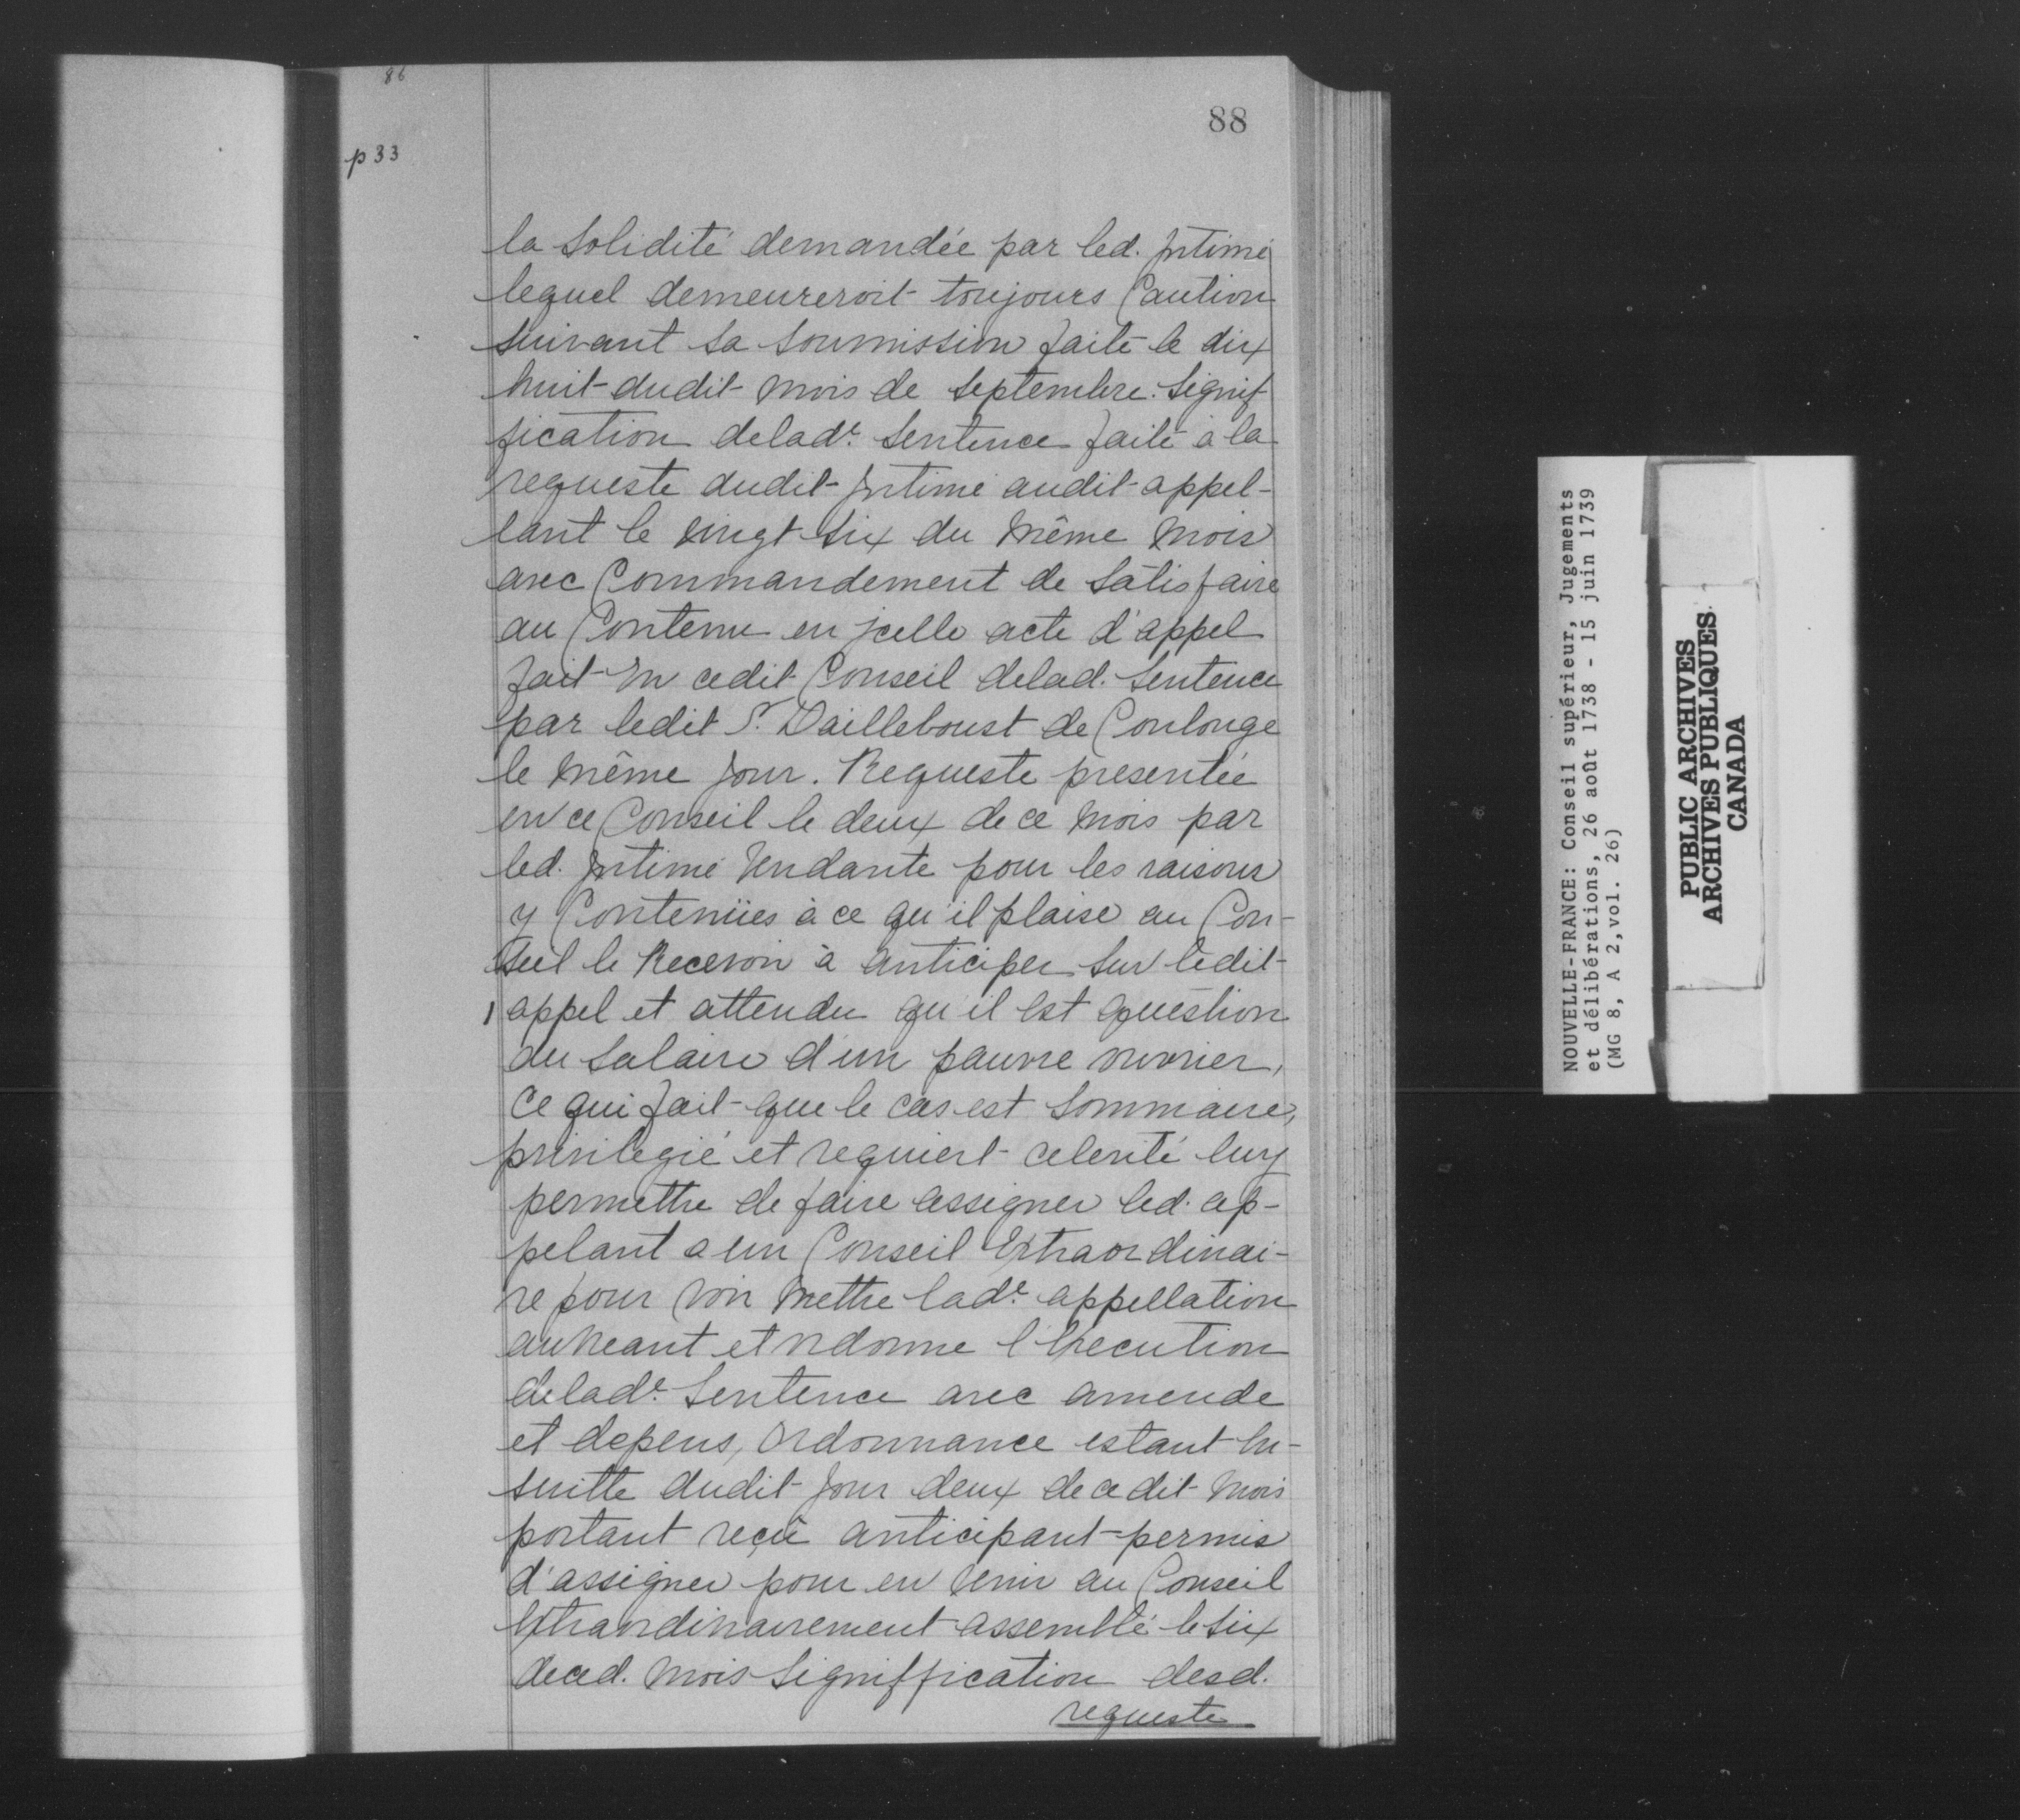 86
88
p 33
la Solidité demandée par led. Jntimé
lequel demeureroit toujours Caution
suivant sa soumission faite le dix
huit dudit mois de Septembre. Signif
fication delade. Sentence faite à la
requeste dudit Jntimé audit appel-
lant le vingt six du même mois
avec Commandement de Satisfaire
au Contenu en jcelle acte d'appel
fait En cedit Conseil delad. Sentence
par ledit Sr. Dailleboust de Coulonge
le même jour. Requeste presentée
en ce Conseil le deux de ce mois par
led. Jntimé tendante pour les raisons
y Contenües à ce qu'il plaise au Con-
seil le Recevoir à anticiper sur ledit
appel et attendu qu'il est question
du Salaire d'un pauvre ouvrier,
ce qui fait que le cas est Sommaire,
privilegié et requiert celerité luy
permettre de faire assigner led. ap-
pelant a un Conseil Extraordinai-
re pour voir mettre lade. appellation
au neant et ordonne l'Execution
delade. Sentence avec amende
et depens, ordonnance estant En-
suitte dudit jour deux de cedit mois
portant reçû anticipant permis
d'assigner pour en venir au Conseil
Extraordinairement assemblé le six
deced. mois Signiffication desd.
requeste
NOUVELLE-FRANCE: Conseil supérieur, Jugements
et délibérations, 26 août 1738 - 15 juin 1739
(MG 8, A 2,vol. 26)
PUBLIC ARCHIVES
ARCHIVES PUBLIQUES
CANADA